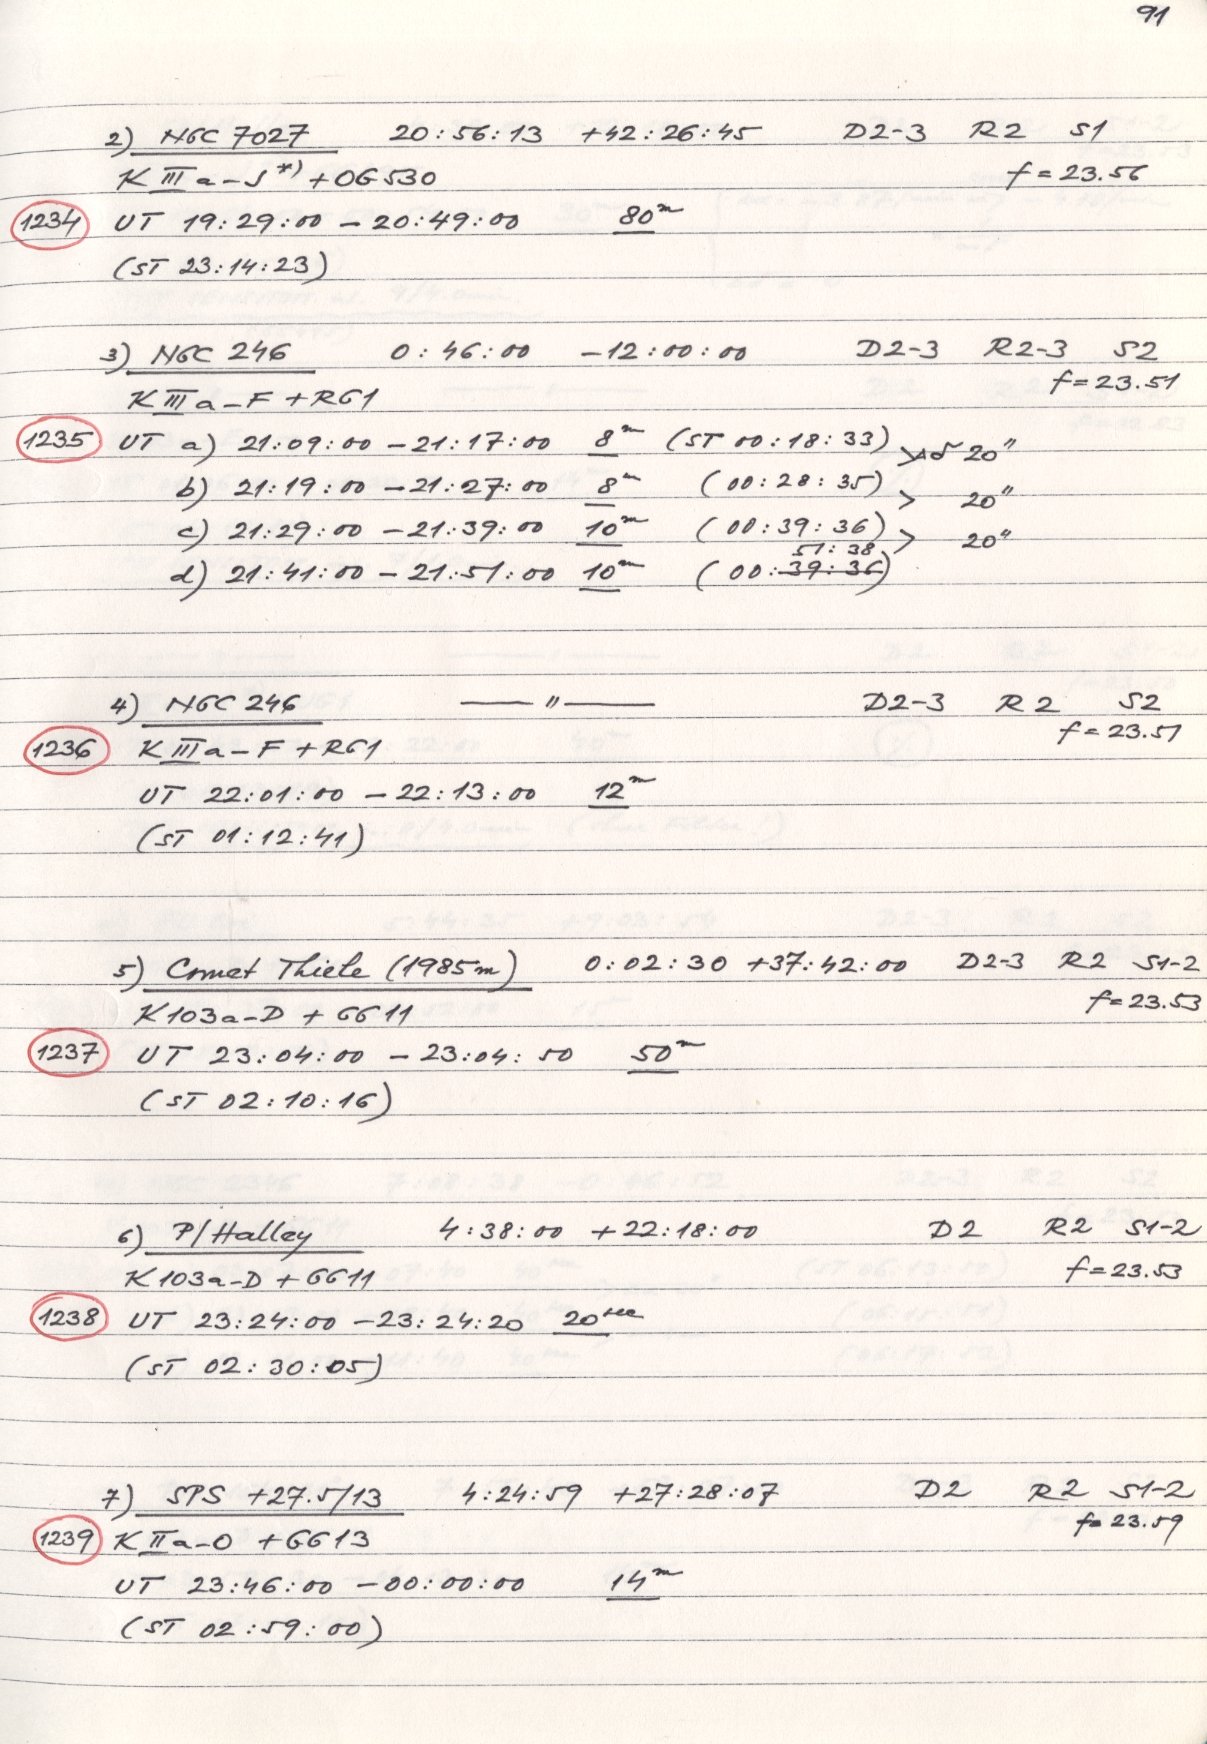 91
2) NGC 7027 20:56:13 +42:26:45 D2-3 R2 S1
K IIIa-J *) +OG530 f=23.56
1234 UT 19:29:00 - 20:49:00 80m
(ST 23:14:23)
3) NGC 246 0:46:00 -12:00:00 D2-3 R2-3 S2
K IIIa-F +RG1 f=23.51
1235 UT a) 21:09:00 - 21:17:00 8m (ST 00:18:33) > Δδ 20"
b) 21:19:00 - 21:27:00 8m (00:28:35) > 20"
c) 21:29:00 - 21:39:00 10m (00:39:36) > 20"
51:38
d) 21:41:00 - 21:51:00 10m (00:39:36)
4) NGC 246 — " — D2-3 R2 S2
1236 K IIIa-F +RG1 f=23.51
UT 22:01:00 - 22:13:00 12m
(ST 01:12:41)
5) Comet Thiele (1985m) 0:02:30 +37:42:00 D2-3 R2 S1-2
K103a-D + GG11 f=23.53
1237 UT 23:04:00 - 23:04:50 50m
(ST 02:10:16)
6) P/Halley 4:38:00 +22:18:00 D2 R2 S1-2
K103a-D + GG11 f=23.53
1238 UT 23:24:00 - 23:24:20 20sec
(ST 02:30:05)
7) SPS +27.5/13 4:24:59 +27:28:07 D2 R2 S1-2
1239 K IIa-O +GG13 f=23.59
UT 23:46:00 - 00:00:00 14m
(ST 02:59:00)